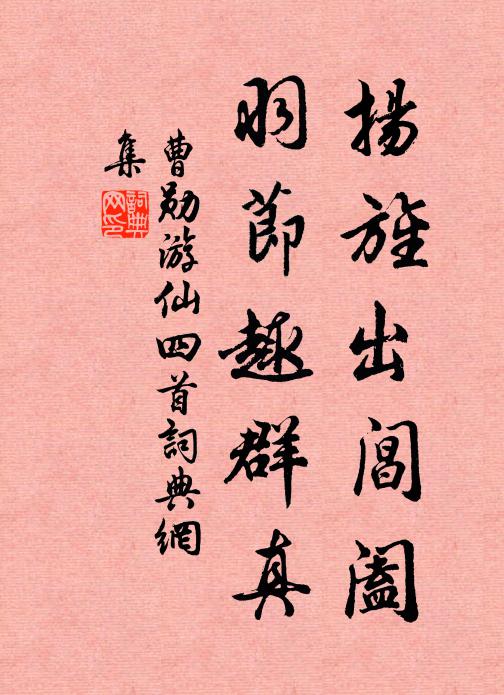 揚旌出閶闔
羽節趣群真
曹勛游仙四首詞典網
集
詞典网印